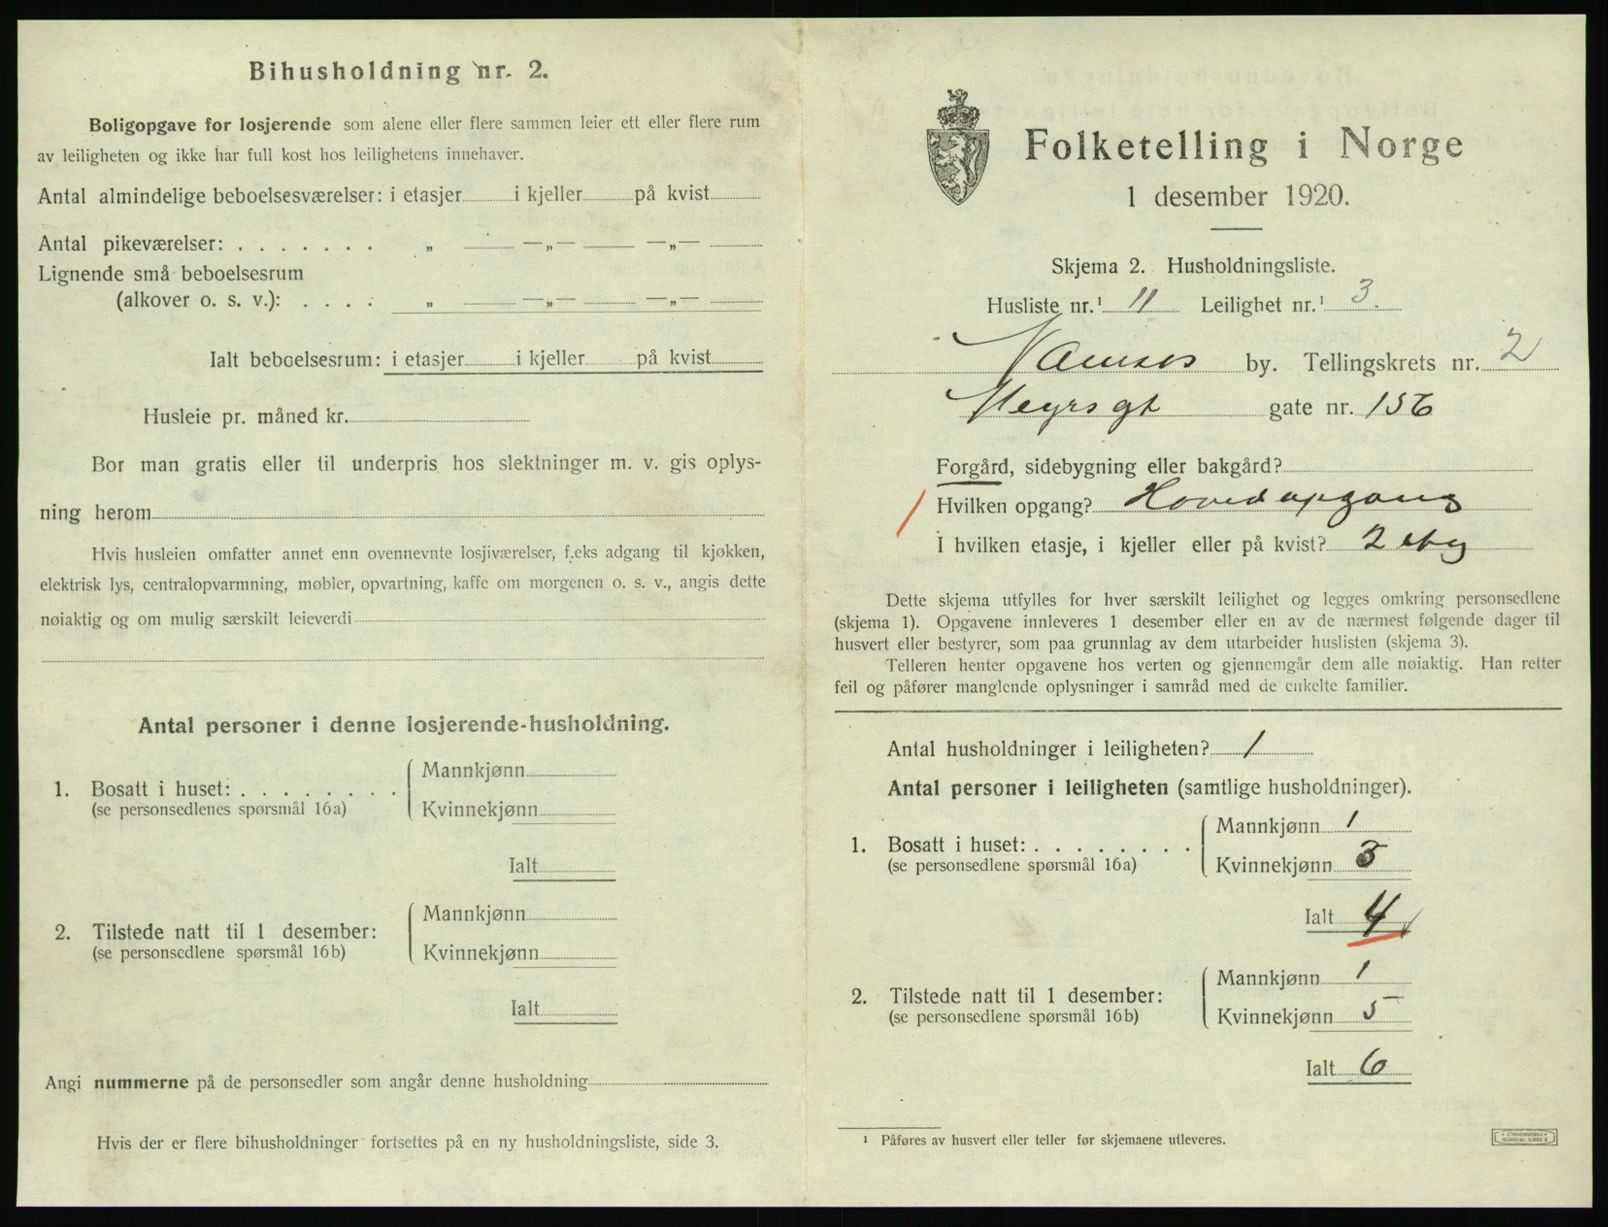 Bihusholdning nr. 2.
Boligopgave for losjerende som alene eller flere sammen leier ett eller flere rum
av leiligheten og ikke har full kost hos leilighetens innehaver.
Antal almindelige beboelsesværelser: i etasjer i kjeller på kvist
Antal pikeværelser: . . . . . . . „ —„— —„—
Lignende små beboelsesrum
(alkover o. s. v.): . . . . „ —„— —„—
Ialt beboelsesrum: i etasjer i kjeller på kvist
Husleie pr. måned kr.
Bor man gratis eller til underpris hos slektninger m. v. gis oplys-
ning herom
Hvis husleien omfatter annet enn ovennevnte losjiværelser, f.eks adgang til kjøkken,
elektrisk lys, centralopvarmning, møbler, opvartning, kaffe om morgenen o. s. v., angis dette
nøiaktig og om mulig særskilt leieverdi
Antal personer i denne losjerende-husholdning.
1. Bosatt i huset: . . . . . . . . Mannkjønn
(se personsedlenes spørsmål 16a) Kvinnekjønn
Ialt
2. Tilstede natt til 1 desember: Mannkjønn
(se personsedlene spørsmål 16b) Kvinnekjønn
Ialt
Angi nummerne på de personsedler som angår denne husholdning
Hvis der er flere bihusholdninger fortsettes på en ny husholdningsliste, side 3.
Folketelling i Norge
1 desember 1920.
Skjema 2. Husholdningsliste.
Husliste nr.¹ 11 Leilighet nr.¹ 3.
Namsos by. Tellingskrets nr. 2
gate nr. 15
Forgård, sidebygning eller bakgård?
Hvilken opgang? Hovedopgang
I hvilken etasje, i kjeller eller på kvist? 2 etg
Dette skjema utfylles for hver særskilt leilighet og legges omkring personsedlene
(skjema 1). Opgavene innleveres 1 desember eller en av de nærmest følgende dager til
husvert eller bestyrer, som paa grunnlag av dem utarbeider huslisten (skjema 3).
Telleren henter opgavene hos verten og gjennemgår dem alle nøiaktig. Han retter
feil og påfører manglende oplysninger i samråd med de enkelte familier.
Antal husholdninger i leiligheten? 1
Antal personer i leiligheten (samtlige husholdninger).
1. Bosatt i huset: . . . . . . . . Mannkjønn 1
(se personsedlene spørsmål 16a) Kvinnekjønn 3
Ialt 4
2. Tilstede natt til 1 desember: Mannkjønn 1
(se personsedlene spørsmål 16b) Kvinnekjønn 5
Ialt 6
¹ Påføres av husvert eller teller før skjemaene utleveres.